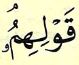 قَوْلِهِمُۥ